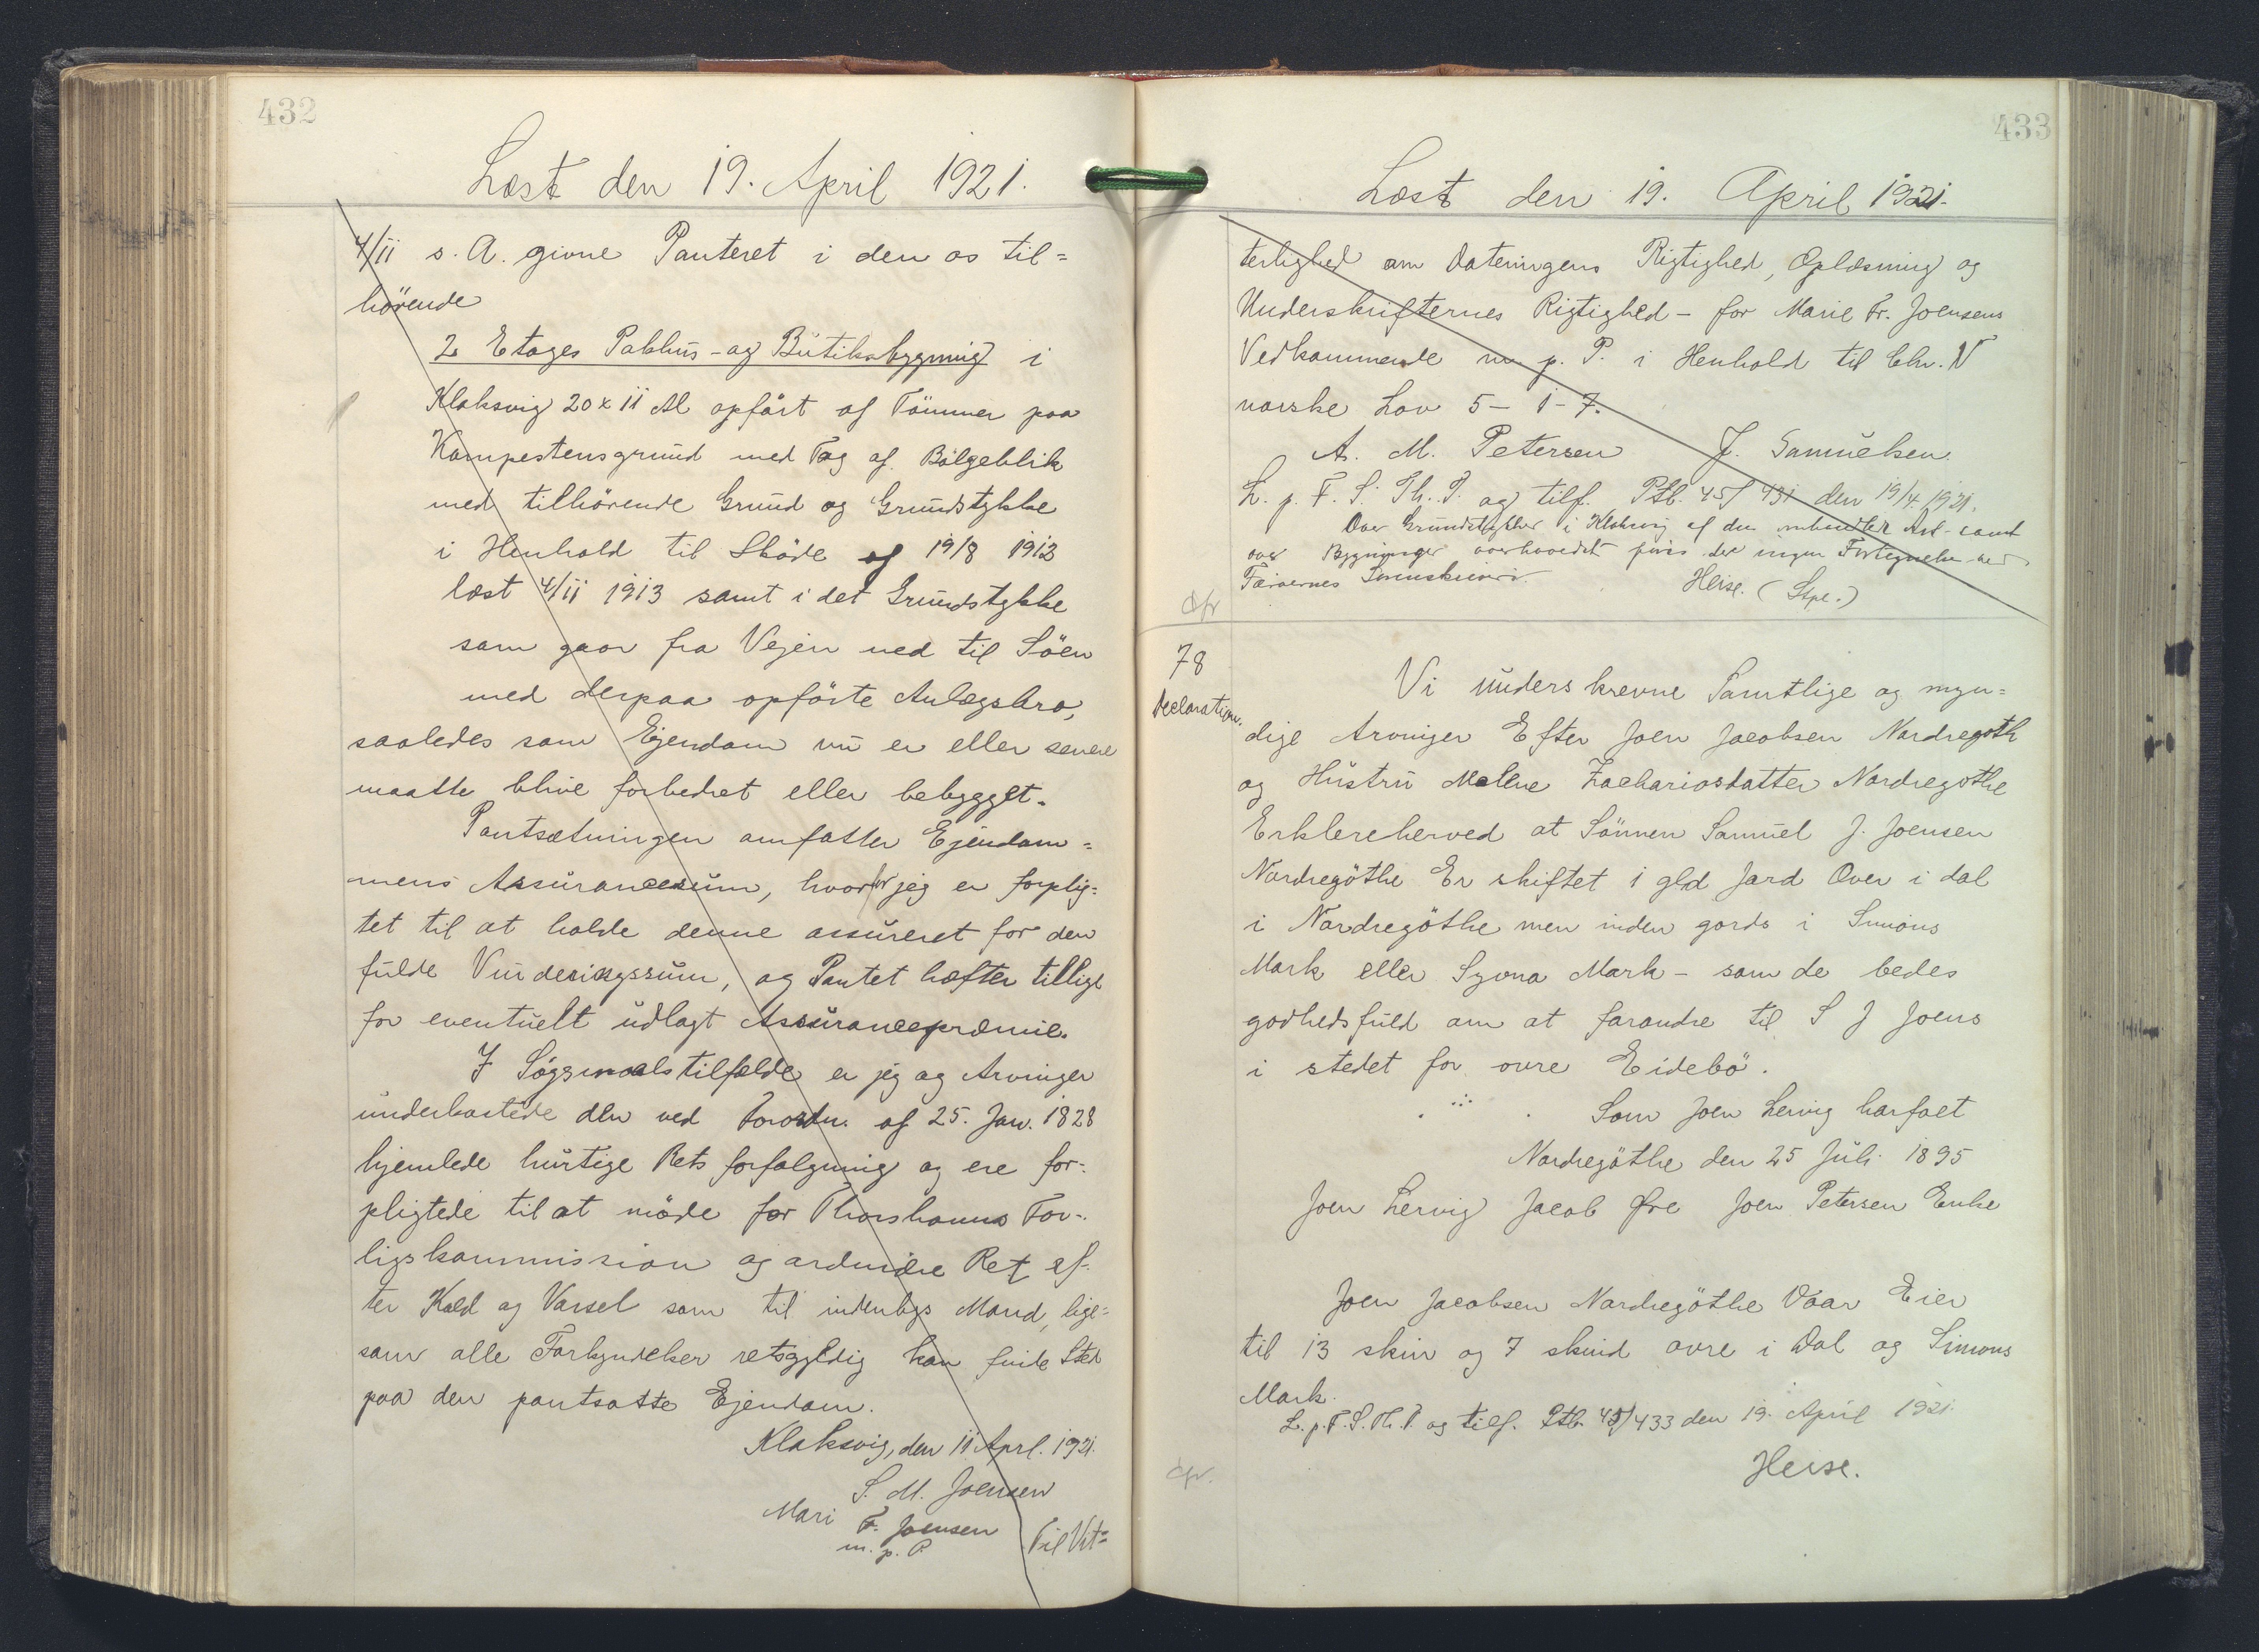 432
Læst den 19. April 1921.
4/11 s. A. givne Panteret i den os til=
hørende
2 Etages Pakhus- og Butiksbygning i
Klaksvig 20 x 11 Al opført af Tömmer paa
Kampestensgrund med Tag af Bølgeblik
med tilhörende Grund og Grundstykke
i Henhold til Skøde af 19/8 1913
læst 4/11 1913 samt i det Grundstykke
som gaar fra Vejen ned til Söen
med derpaa opførte Anlægsbro,
saaledes som Ejendom nu er eller senere
maatte blive forbedret eller bebygget.
Pantsætningen omfatter Ejendom=
mens Assurancesum, hvorfor jeg er forplig=
tet til at holde denne assureret for den
fulde Vurderingssum, og Pantet hæfter tillige
for eventuelt udlagt Assurancepræmie.
I Søgsmaalstilfælde er jeg og Arvinger
underkastede den ved Forordn. af 25. Jan. 1828
hjemlede hurtige Rets forfølgning og ere for-
pligtede til at møde for Thorshavns For-
ligskommission og ordinære Ret ef-
ter Kald og Varsel som til indenbys Mand, lige=
som alle Forkyndelser retsgyldig kan finde Sted
paa den pantsatte Ejendom.
Klaksvig, den 11 Aprl. 1921.
S. M. Joensen
Mari F. Joensen
m. p. P.
Til Vit=
433
Læst den 19. April 1921.
terlighed om Dateringens Rigtighed, Oplæsning og
Underskrifternes Rigtighed - for Marie Fr. Joensens
Vedkommende m. p. P. i Henhold til Chr. V
norske Lov 5-1-7.
A. M. Petersen J. Samuelsen.
L. p. F. S. Th. T. og tilf. Ptb. 45/431 den 19/4. 1921.
Over Grundstykker i Klaksvig af den omhandlede Art samt
over Bygninger overhovedet føres der ingen Fortegnelse ved
Færøernes Sorenskriveri.
Heise. (Stpl.)
Afr
78
Declaration.
Vi underskrevne Samtlige og myn=
dige Arvinger Efter Joen Jacobsen Nordregøth
og Hustru Malene Zachariasdatter Nordregøthe
Erklereherved at Sönnen Samuel J. Joensen
Nordregöthe Er skiftet 1 gld Jord Over i dal
i Nordregöthe men inden gards i Simons
Mark eller Syona Mark - som de bedes
godhedsfuld om at forandre til S J Joens
i stedet for ovre Eidebö.
Som Joen Lervig harfaet
Nordregöthe den 25 Juli 1895
Joen Lervig Jacob Øre Joen Petersen Enke
Joen Jacobsen Nordregöthe Vaar Eier
til 13 skin og 7 skind ovre i Dal og Simons
Mark.
L. p. F. S. Th. T. og tilf. Ptb. 45/433 den 19. April 1921.
Heise.
Afr.